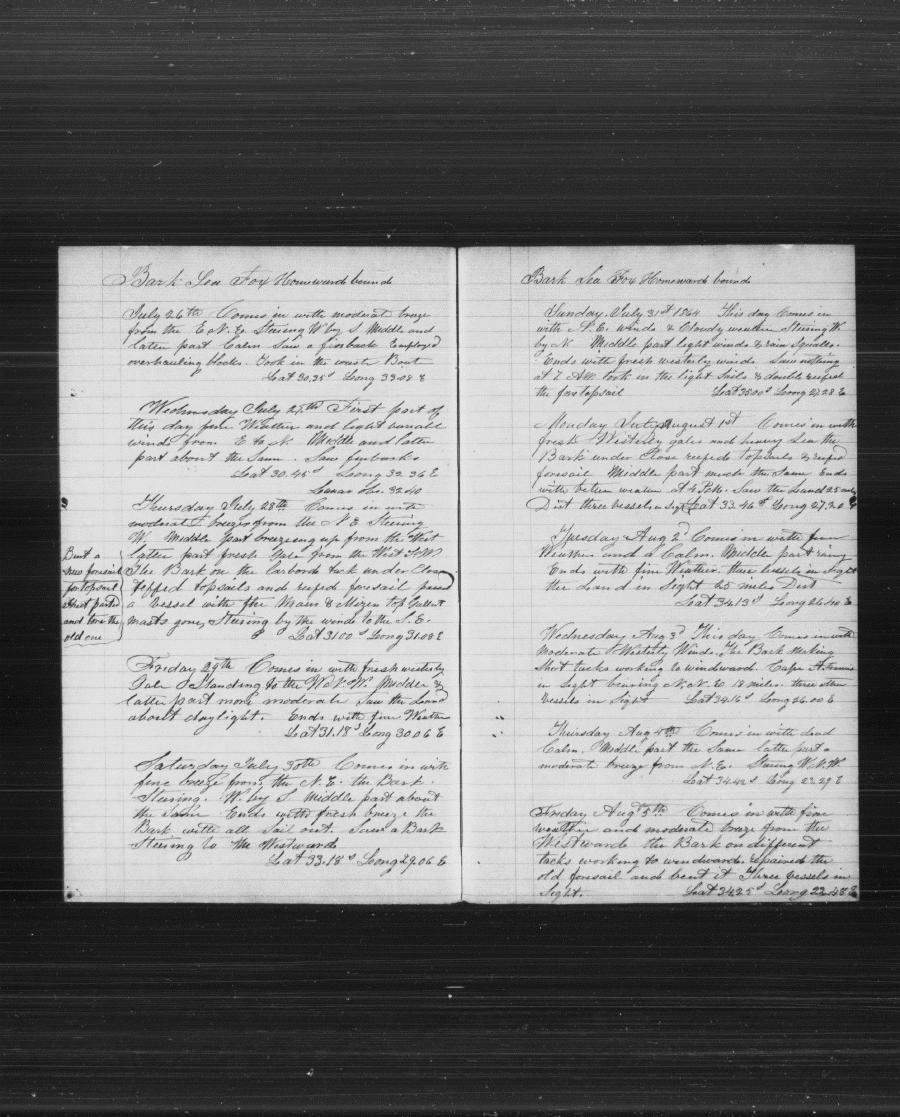 Bark Sea Fox Homeward bound
July 26th Comes in with moderat breze
from the E.N.E. Steering W by S. Middle and
latter part Calm Saw a finback Employed
overhauling blocks. Took in the waist Boat
Lat 30.35 s Long 33.08 E
Wednsday July 27th First part of
this day fine Weather and light
winds from E to N Middle and latter
part about the Same. Saw finbacks
Lat 30.45 s Long 32.36 E
32 40
Thursday July 28th Comes in with
moderat breezes from the N E Steering
W. Middle part breezeing up from the West
latter part fresh Gale from the West S.W
The Bark on the Larbord tack under Close
reffed topsails and reefed foresail passed
a vessel with Fore Main & Mizen top Gallent
masts gone, Steering by the winds to the S.E.
Lat 31.00 s Long 31.08 E
Bent a
new foresail
foretopsail
Sheet parted
and tore the
old one
Friday 29th Comes in with fresh westerly
Gale Standing to the W.N.W. Middle &
latter part more moderate Saw the Land
about daylight. Ends with fine Weather
Lat 31.18 s Long 30.06 E
Saturday July 30th Comes in with
fine breeze from the N.E. the Bark
Steering. W. by S Middle part about
the Same Ends with fresh breeze the
Bark with all Sail out. Saw a Bark
Steering to the Westward
Lat 33.18 s Long 29.06 E
Bark Sea Fox Homeward bound
Sunday July 31st 1864 This day Comes in
with N.E. winds & Cloudy weather Steering W.
by N Middle part light winds & rain Squalls.
Ends with fresh westerly winds Saw nothing
at 7 AM took in the light Sails & double reefed
the foretopsail Lat 35.00 s Long 27.28 E
Monday August 1st Comes in with
fresh Westerly gales and heavy Sea the
Bark under Close reefed topsails & reefed
foresail Middle part much the Same Ends
with better weather at 4 P.M. Saw the Land 25 miles
Dist three vessels in Sight Lat 33.46 s Long 27.20 E
Tuesday Aug 2d Comes in with fine
Weather and a Calm. Middle part rainy
Ends with fine Weather. three vessels in Sight
the Land in Sight 25 miles Dist
Lat 34.13 s Long 26.40 E
Wednesday Aug 3d This day Comes in with
moderate Westerly Winds. The Bark making
Short tacks working to windward. Cape
in Sight bearing N.N.E 18 miles. three
Vessels in Sight Lat 34.16 s Long 26.00 E
Thursday Aug 4th Comes in with dead
Calm. Middle part the Same latter part a
moderate breeze from N.E. Steering W.N.W.
Lat 34.42 s Long 23.29 E
Friday Aug 5th Comes in with fine
weather and moderate breze from the
Westward the Bark on different
tacks working to windward. repaired the
old foresail and bent it Three vessels in
Sight. Lat 34.25 s Long 22.48 E